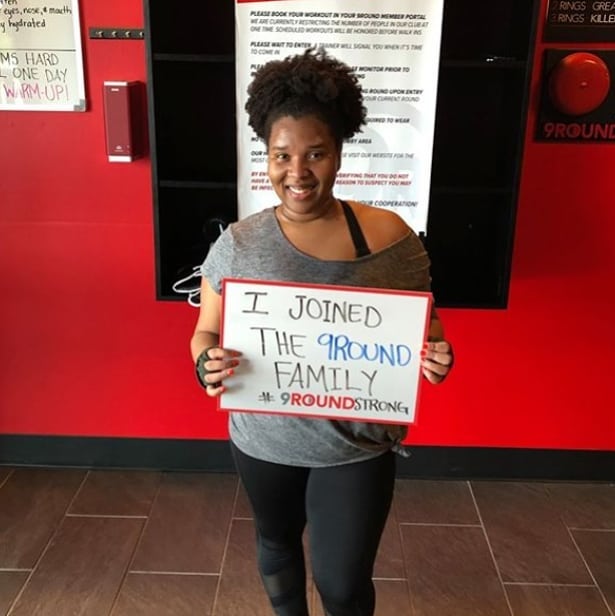 eyes, nose, & mouth
hydrated
HARD
ONE DAY
WARM-UP!
PLEASE BOOK YOUR WORKOUT IN YOUR 9ROUND MEMBER PORTAL
WE ARE CURRENTLY RESTRICTING THE NUMBER OF PEOPLE IN OUR CLUB AT
ONE TIME. SCHEDULED WORKOUTS WILL BE HONORED BEFORE WALK INS
PLEASE WAIT TO ENTER. A TRAINER WILL SIGNAL YOU WHEN IT'S TIME
TO COME IN
MONITOR PRIOR TO
ROUND UPON ENTRY
YOUR CURRENT ROUND
TO WEAR
AREA
VISIT OUR WEBSITE FOR THE
MOST
BY
THAT YOU DO NOT
HAVE
REASON TO SUSPECT YOU MAY
BE
YOUR COOPERATION!
2 RINGS
3 RINGS
9ROUND
I JOINED
THE 9ROUND
FAMILY
# 9ROUNDSTRONG